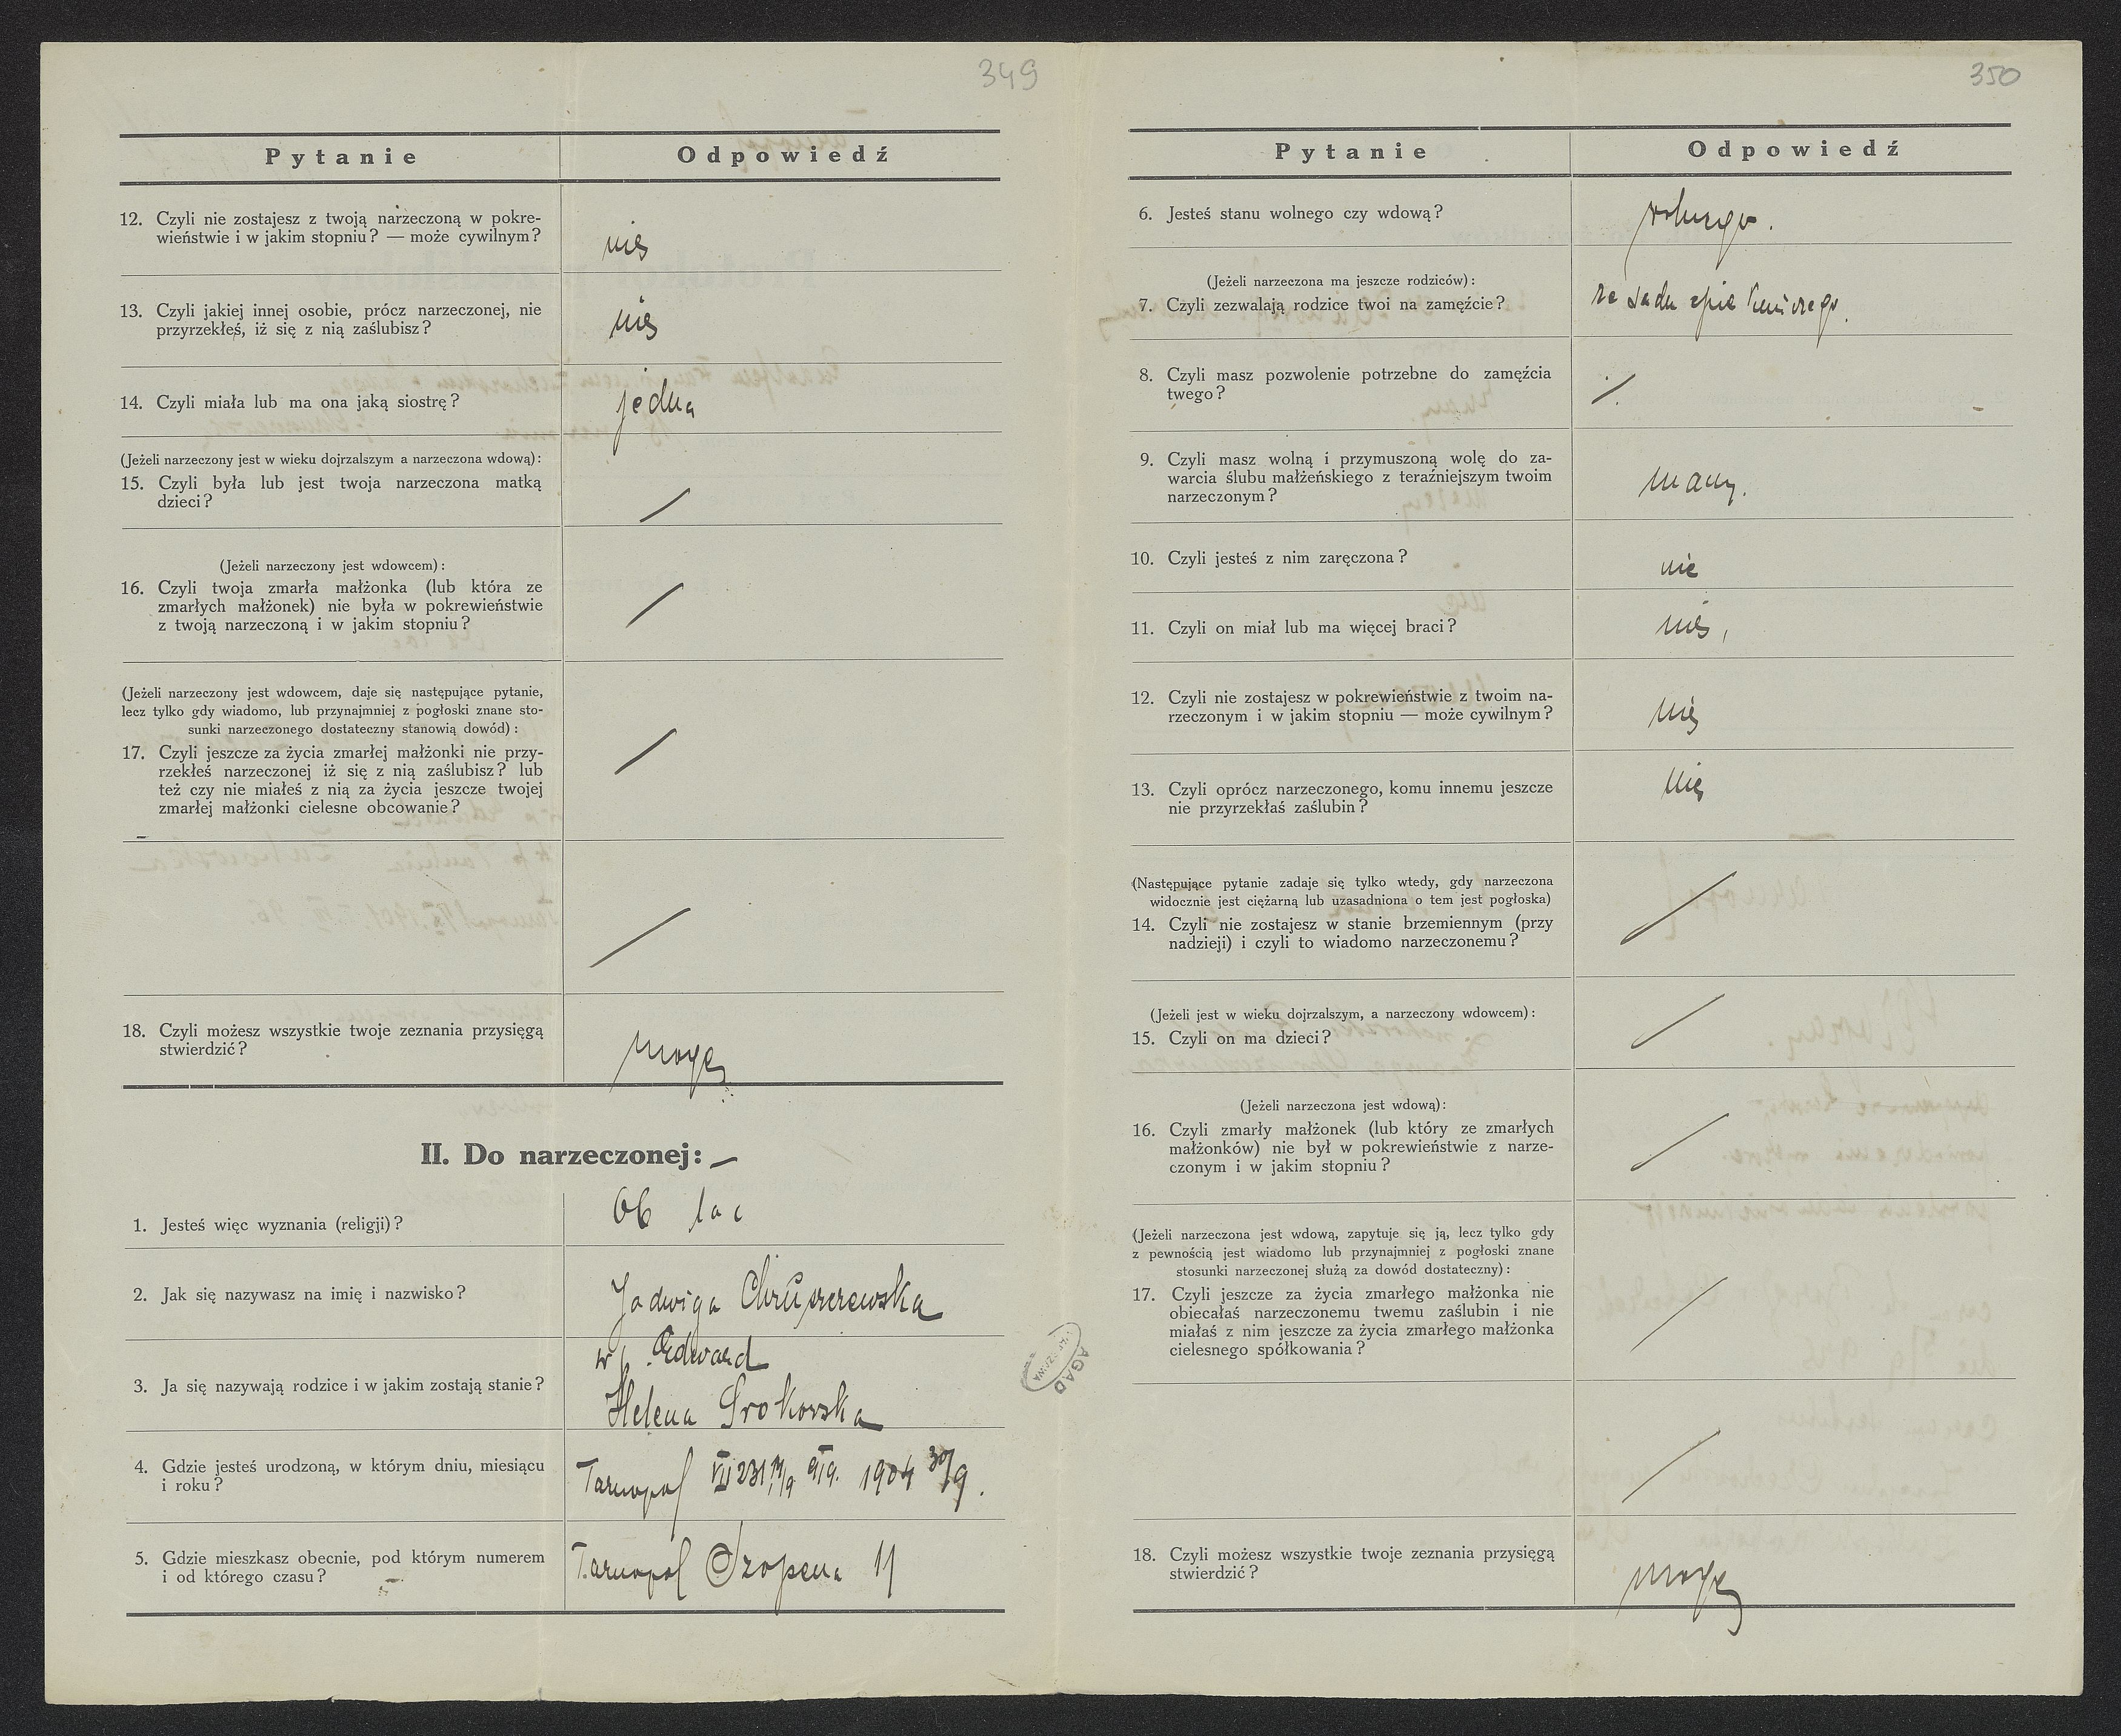 349
Pytanie
Odpowiedź
12. Czyli nie zostajesz z twoją narzeczoną w pokre-
wieństwie i w jakim stopniu? — może cywilnym?
nie
13. Czyli jakiej innej osobie, prócz narzeczonej, nie
przyrzekłeś, iż się z nią zaślubisz?
nie
14. Czyli miała lub ma ona jaką siostrę?
jedna
(Jeżeli narzeczony jest w wieku dojrzalszym a narzeczona wdową):
15. Czyli była lub jest twoja narzeczona matką
dzieci?
/
(Jeżeli narzeczony jest wdowcem):
16. Czyli twoja zmarła małżonka (lub która ze
zmarłych małżonek) nie była w pokrewieństwie
z twoją narzeczoną i w jakim stopniu?
/
(Jeżeli narzeczony jest wdowcem, daje się następujące pytanie,
lecz tylko gdy wiadomo, lub przynajmniej z pogłoski znane sto-
sunki narzeczonego dostateczny stanowią dowód):
17. Czyli jeszcze za życia zmarłej małżonki nie przy-
rzekłeś narzeczonej iż się z nią zaślubisz? lub
też czy nie miałeś z nią za życia jeszcze twojej
zmarłej małżonki cielesne obcowanie?
/
/
18. Czyli możesz wszystkie twoje zeznania przysięgą
stwierdzić?
mogę
II. Do narzeczonej:
1. Jesteś więc wyznania (religji)?
ob łac
2. Jak się nazywasz na imię i nazwisko?
Jadwiga Chruszczewska
3. Ja się nazywają rodzice i w jakim zostają stanie?
Edward
Helena Srokowska
4. Gdzie jesteś urodzoną, w którym dniu, miesiącu
i roku?
Tarnopol VII 231 1904 30/9.
5. Gdzie mieszkasz obecnie, pod którym numerem
i od którego czasu?
Tarnopol Szopena 11
AGAD
350
Pytanie
Odpowiedź
6. Jesteś stanu wolnego czy wdową?
wolnego.
(Jeżeli narzeczona ma jeszcze rodziców):
7. Czyli zezwalają rodzice twoi na zamęźcie?
ze sadu opiekuńczego.
8. Czyli masz pozwolenie potrzebne do zamęźcia
twego?
/.
9. Czyli masz wolną i przymuszoną wolę do za-
warcia ślubu małżeńskiego z teraźniejszym twoim
narzeczonym?
mam.
10. Czyli jesteś z nim zaręczona?
nie
11. Czyli on miał lub ma więcej braci?
nie,
12. Czyli nie zostajesz w pokrewieństwie z twoim na-
rzeczonym i w jakim stopniu — może cywilnym?
nie
13. Czyli oprócz narzeczonego, komu innemu jeszcze
nie przyrzekłaś zaślubin?
nie
(Następujące pytanie zadaje się tylko wtedy, gdy narzeczona
widocznie jest ciężarną lub uzasadniona o tem jest pogłoska)
14. Czyli nie zostajesz w stanie brzemiennym (przy
nadzieji) i czyli to wiadomo narzeczonemu?
/
(Jeżeli jest w wieku dojrzalszym, a narzeczony wdowcem):
15. Czyli on ma dzieci?
/
(Jeżeli narzeczona jest wdową):
16. Czyli zmarły małżonek (lub który ze zmarłych
małżonków) nie był w pokrewieństwie z narze-
czonym i w jakim stopniu?
/
(Jeżeli narzeczona jest wdową, zapytuje się ją, lecz tylko gdy
z pewnością jest wiadomo lub przynajmniej z pogłoski znane
stosunki narzeczonej służą za dowód dostateczny):
17. Czyli jeszcze za życia zmarłego małżonka nie
obiecałaś narzeczonemu twemu zaślubin i nie
miałaś z nim jeszcze za życia zmarłego małżonka
cielesnego spółkowania?
/
/
18. Czyli możesz wszystkie twoje zeznania przysięgą
stwierdzić?
mogę